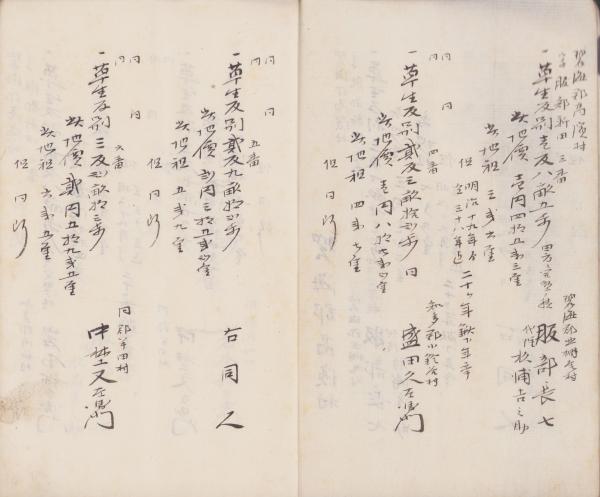 碧海郡高濱村
字服部新田三番
一草生反別壱反八畝五歩
此地價壱円四拾五銭三厘
此地租三銭六厘
但明治十九年ヨリ
全三十八年迄
二十ヶ年鍬下年季
碧海郡北棚尾村
服部長七
代理杉浦吉之助
同 同 四番
一草生反別貳反三畝拾歩 同
此地價壱円八拾六銭厘
此地租四銭七厘
知多郡小鈴谷村
盛田久左衛門
同 同 五番
一草生反別貳反九畝拾歩
此地價貳円三拾五銭厘
此地租五銭九厘
但同断
右同人
同 同 六番
一草生反別三反畝拾三歩
此地價貳円五拾九銭五厘
此地租六銭五厘
但同断
同郡半田村
中埜又左衛門